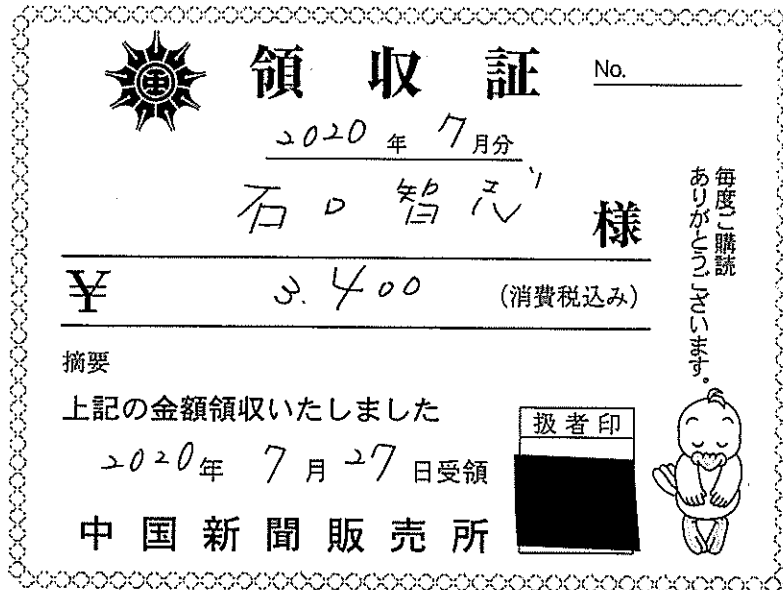 領収証
No.
2020年 7月分
石口智志 様
¥ 3.400 (消費税込み)
摘要
上記の金額領収いたしました
2020年 7月 27日受領
中国新聞販売所
扱者印
毎度ご購読
ありがとうございます。